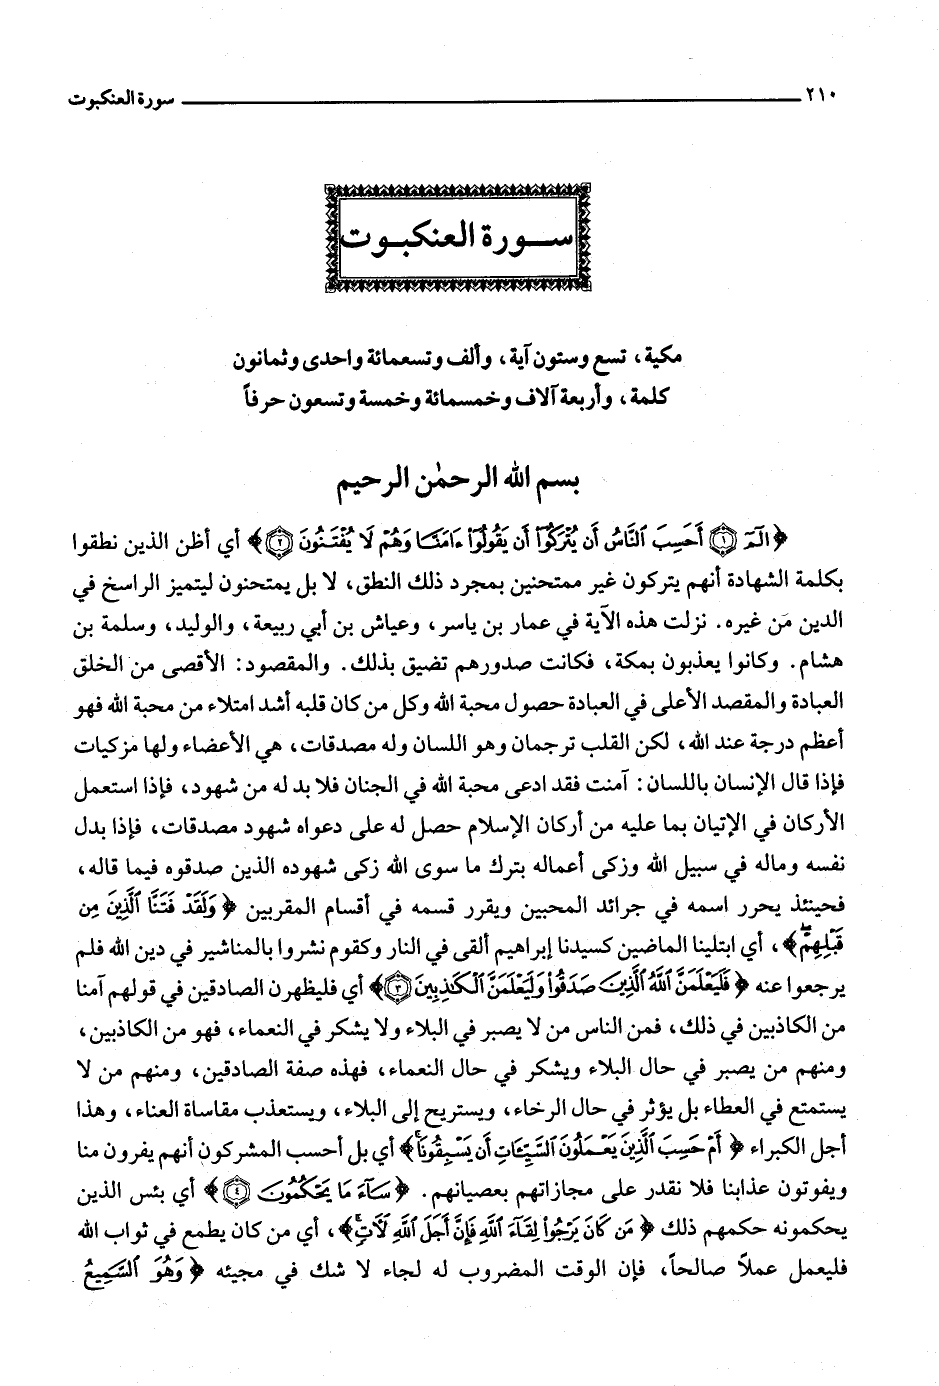 ٢١٠ سورة العنكبوت
سورة العنكبوت
مكية، تسع وستون آية، وألف وتسعمائة واحدى وثمانون
كلمة، وأربعة آلاف وخمسمائة وخمسة وتسعون حرفاً
بسم الله الرحمٰن الرحيم
﴿الٓمٓ ۝١ أَحَسِبَ ٱلنَّاسُ أَن يُتۡرَكُوٓاْ أَن يَقُولُوٓاْ ءَامَنَّا وَهُمۡ لَا يُفۡتَنُونَ ۝٢﴾ أي أظن الذين نطقوا
بكلمة الشهادة أنهم يتركون غير ممتحنين بمجرد ذلك النطق، لا بل يمتحنون ليتميز الراسخ في
الدين مَن غيره. نزلت هذه الآية في عمار بن ياسر، وعياش بن أبي ربيعة، والوليد، وسلمة بن
هشام. وكانوا يعذبون بمكة، فكانت صدورهم تضيق بذلك. والمقصود: الأقصى من الخلق
العبادة والمقصد الأعلى في العبادة حصول محبة الله وكل من كان قلبه أشد امتلاء من محبة الله فهو
أعظم درجة عند الله، لكن القلب ترجمان وهو اللسان وله مصدقات، هي الأعضاء ولها مزكيات
فإذا قال الإنسان باللسان: آمنت فقد ادعى محبة الله في الجنان فلا بد له من شهود، فإذا استعمل
الأركان في الإتيان بما عليه من أركان الإسلام حصل له على دعواه شهود مصدقات، فإذا بدل
نفسه وماله في سبيل الله وزكى أعماله بترك ما سوى الله زكى شهوده الذين صدقوه فيما قاله،
فحينئذ يحرر اسمه في جرائد المحبين ويقرر قسمه في أقسام المقربين ﴿وَلَقَدۡ فَتَنَّا ٱلَّذِينَ مِن
قَبۡلِهِمۡۖ﴾، أي ابتلينا الماضين كسيدنا إبراهيم ألقى في النار وكقوم نشروا بالمناشير في دين الله فلم
يرجعوا عنه ﴿فَلَيَعۡلَمَنَّ ٱللَّهُ ٱلَّذِينَ صَدَقُواْ وَلَيَعۡلَمَنَّ ٱلۡكَٰذِبِينَ ۝٣﴾ أي فليظهرن الصادقين في قولهم آمنا
من الكاذبين في ذلك، فمن الناس من لا يصبر في البلاء ولا يشكر في النعماء، فهو من الكاذبين،
ومنهم من يصبر في حال البلاء ويشكر في حال النعماء، فهذه صفة الصادقين، ومنهم من لا
يستمتع في العطاء بل يؤثر في حال الرخاء، ويستريح إلى البلاء، ويستعذب مقاساة العناء، وهذا
أجل الكبراء ﴿أَمۡ حَسِبَ ٱلَّذِينَ يَعۡمَلُونَ ٱلسَّيِّـَٔاتِ أَن يَسۡبِقُونَاۚ﴾ أي بل أحسب المشركون أنهم يفرون منا
ويفوتون عذابنا فلا نقدر على مجازاتهم بعصيانهم. ﴿سَآءَ مَا يَحۡكُمُونَ ۝٤﴾ أي بئس الذين
يحكمونه حكمهم ذلك ﴿مَن كَانَ يَرۡجُواْ لِقَآءَ ٱللَّهِ فَإِنَّ أَجَلَ ٱللَّهِ لَأٓتٖۚ﴾، أي من كان يطمع في ثواب الله
فليعمل عملاً صالحاً، فإن الوقت المضروب له لجاء لا شك في مجيئه ﴿وَهُوَ ٱلسَّمِيعُ